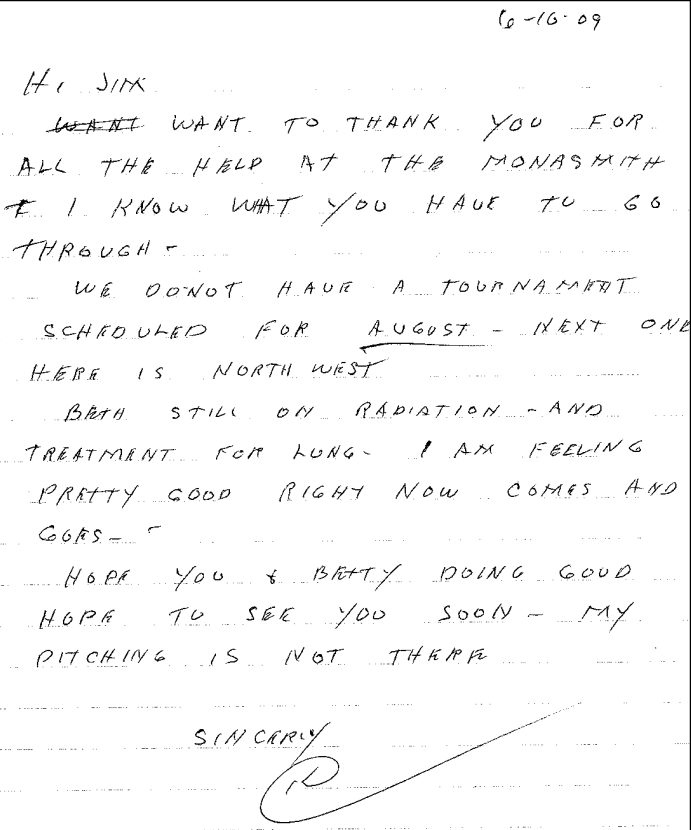 6-16-09
HI JIM
WANT WANT TO THANK YOU FOR
ALL THE HELP AT THE MONASMITH
I I KNOW WHAT YOU HAVE TO GO
THROUGH -
WE DO NOT HAVE A TOURNAMENT
SCHEDULED FOR AUGUST - NEXT ONE
HERE IS NORTH WEST
BETH STILL ON RADIATION - AND
TREATMENT FOR LUNG - I AM FEELING
PRETTY GOOD RIGHT NOW COMES AND
GOES - -
HOPE YOU & BETTY DOING GOOD
HOPE TO SEE YOU SOON - MY
PITCHING IS NOT THERE
SINCERLY